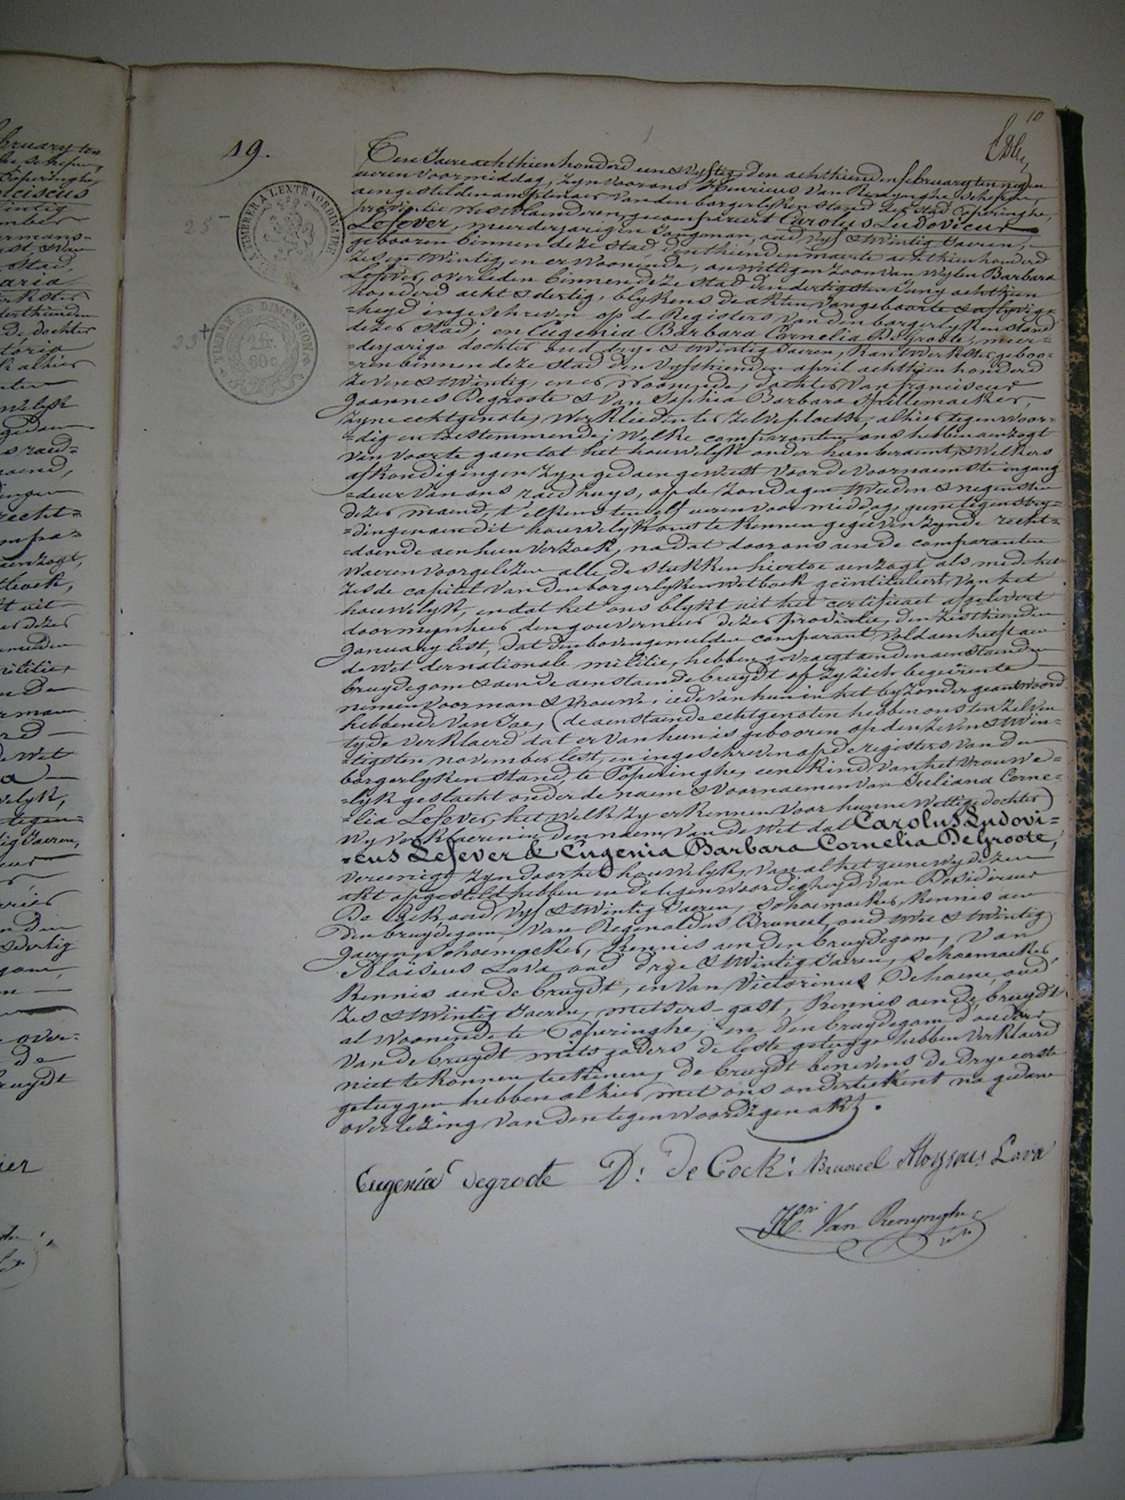 10
19.
Ten Jaere achthien honderd een & vyftig, den achthienden february ten negen
ueren voormiddag, zyn voor ons Henricus Van Renynghe Schepen,
aengestelden amptenaer van den borgerlyken stand der stad Poperinghe,
provintie Westvlaenderen, gecompareert Carolus Ludovicus
Lefever, meerderjarigen jongman, oud vyf & twintig Jaeren,
gebooren binnen deze stad, den thienden maerte achthien honderd
zes en twintig, en er woonende, onwettigen zoon van wylen Barbara
Lefever, overleden binnen deze stad den dertigsten Juny achthien
honderd acht & dertig, blykens de akten van geboorte & aflyvig-
=heyd ingeschreven op de Registers van den borgerlyken stand
dezer stad; en Eugenia Barbara Cornelia De Groote, meer=
=derjarige dochter oud drye & twintig Jaeren, kantwerkster geboo=
=ren binnen deze stad den vyfthienden april achthien honderd
zeven & twintig, en er woonende, dochter van franciscus
Joannes Degroote & van Sophia Barbara Spillemaeker,
zyne echtgenote, werklieden ter zelve plaetse, alhier tegenwoor=
=dig en toestemmende; Welke comparanten ons hebben aenzogt
van voorts gaen tot het houwelyk onder hun beraemt, & welkers
afkondigingen zyn gedaen geweest voor de voornaemste ingang
=deur van ons raedhuys, op de zondagen tweeden & negensten
dezer maend, t'elkens ten elf ueren voormiddag, geene tegenstry=
=dingen aen dit houwelyk ons te kennen gegeven zynde recht=
=doende aen hun verzoek, na dat door ons aen de comparanten
waeren voorgelezen alle de stukken hiertoe aenzogt als mede het
zesde capitel van den borgerlyken wetboek geïntituleert van het
houwelyk, en dat het ons blykt uit het certificaet afgelevert
door mynheer den gouverneur dezer provintie, den zesthienden
January lest, dat den bovengemelden comparant voldaen heeft aen
de wet der nationale militie, hebben gevraegt aen den aenstaenden
bruydegom & aen de aenstaende bruydt of zy zich begeirente
nemen voor man & vrouwe; ieder van hun in het byzonder geantwoord
hebbende van Jae, (de aenstaende echtgenoten hebben ons ten zelven
tyde verklaerd dat er van hun is gebooren op den zeven & twin=
=tigsten november lest, en ingeschreven op de registers van den
borgerlyken stand, te Poperinghe, een kind van het vrouwe=
=lyk geslacht onder de naem & voornaemen van Juliana Corne=
=lia Lefever, het welk zy erkennen voor hunne wettige dochter)
Wy verklaeren in den naem van de wet dat Carolus Ludovi=
=cus Lefever & Eugenia Barbara Cornelia De Groote,
vereenigd zyn door het houwelyk, van al het geene wy dezen
akt opgesteld hebben in de tegenwoordigheyd van Desiderius
De Cock oud vyf & twintig Jaeren, schoemaeker, kennis aen
den bruydegom, van Reginaldus Bruneel, oud twee & twintig
Jaeren, schoemaeker, kennis aen den bruydegom, van
Aloisius Lava oud drye & twintig Jaeren, schoemaeker,
kennis aen de bruydt, en van Victorinus Dehaene, oud
zes & twintig Jaeren, metsers-gast, kennis aen de bruydt
al woonende te Poperinghe, en den bruydegom d'ouders
van de bruydt mitsgaders de leste getuyge hebben verklaerd
niet te konnen teekenen, de bruydt benevens de drye eerste
getuygen hebben alhier met ons onderteekent na gedane
overlezing van den tegenwoordigen akt.
Eugenia degroote D. de Cock Bruneel Aloysius Lava
Hri. Van Renynghe
25
33
TIMBRE A L'EXTRAORDINAIRE
TIMBRE DE DIMENSION